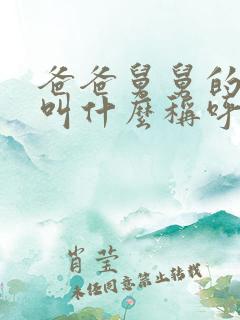 爸爸舅舅的
叫什麼稱呼
肖莹
未经同意禁止转载